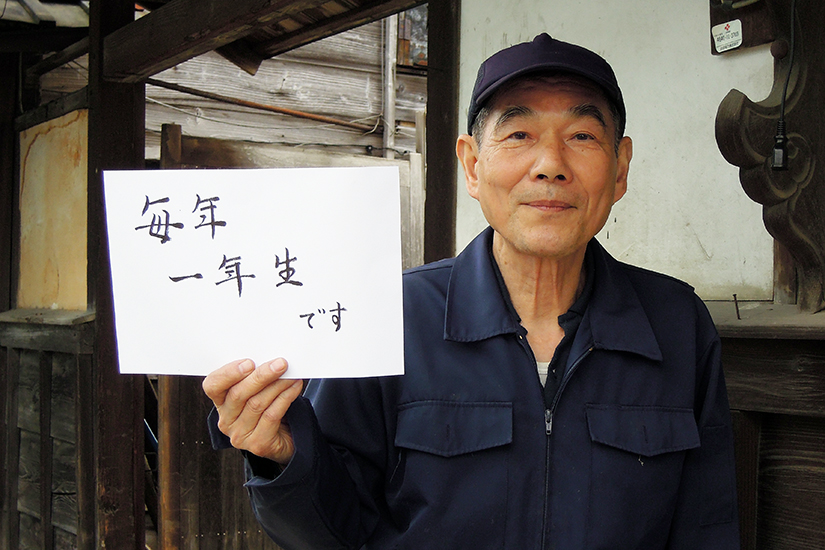 毎年
一年生
です